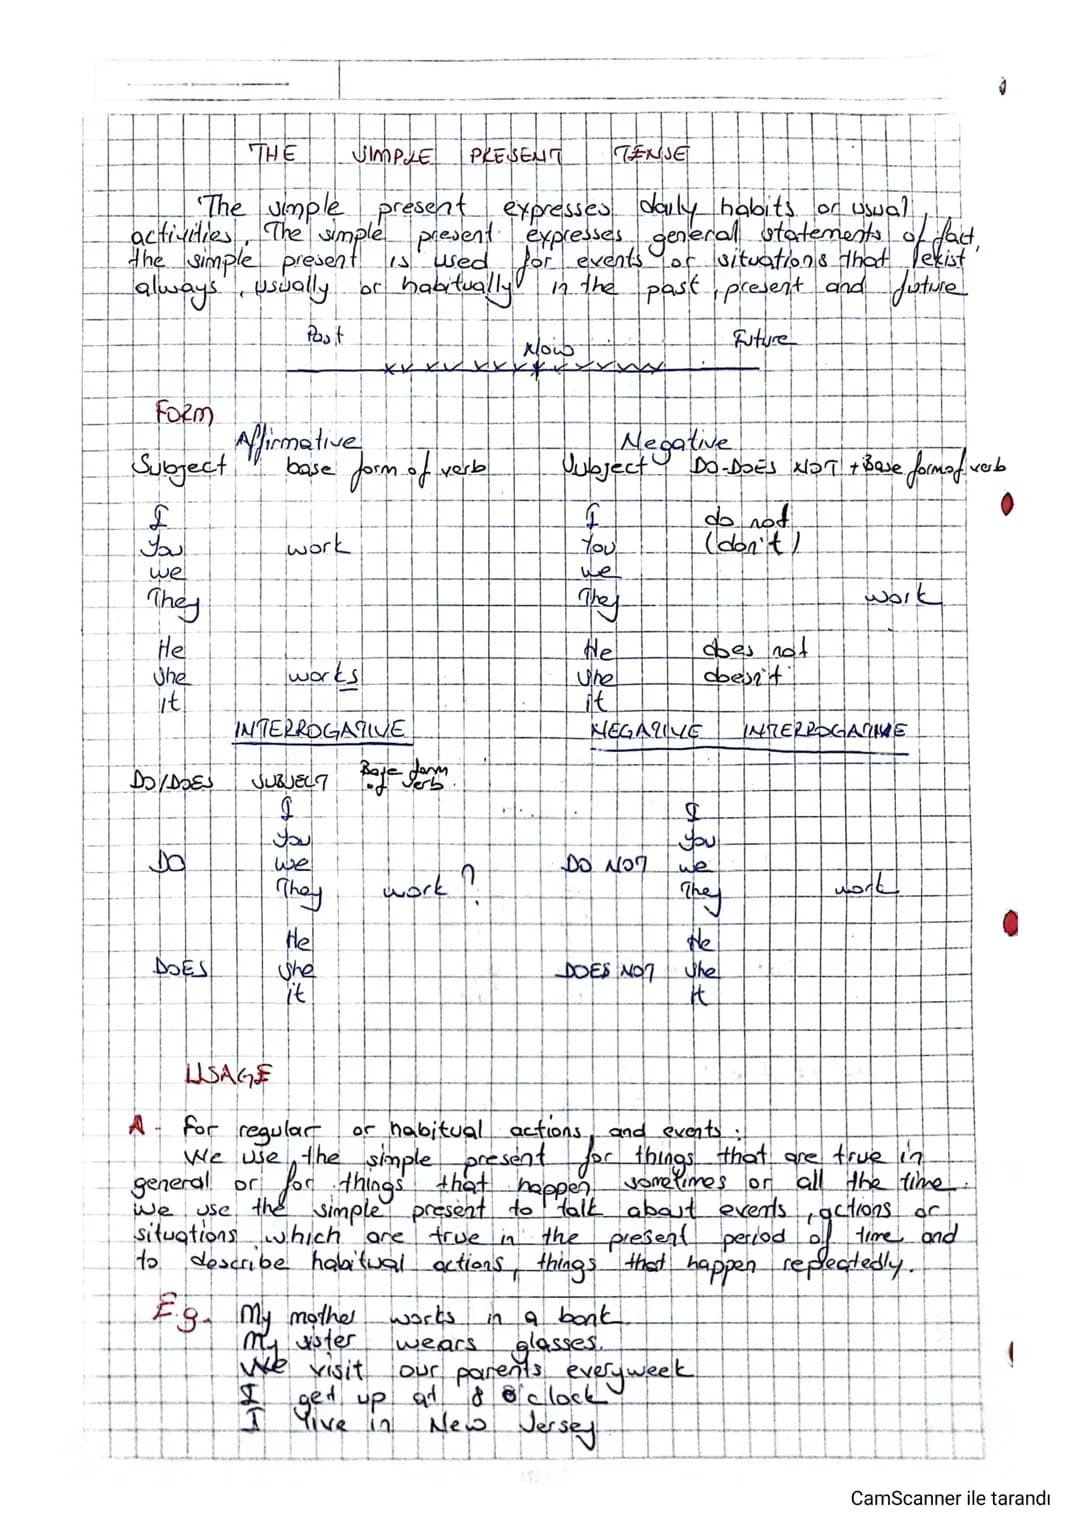 THE SIMPLE PRESENT TENSE
The simple present expresses daily habits or usual
activities, The simple present expresses general statements of fact,
the simple present is used for events or situations that exist
always, usually or habitually in the past, present and future
Past Now Future
FORM
Affirmative Negative
Subject base form of verb Subject DO-DOES NOT + Base form of verb
I I do not
You work You (don't)
we we
They They work
He He does not
She works She doesn't
it it
INTERROGATIVE NEGATIVE INTERROGATIVE
DO/DOES SUBJECT Base form of verb
I I
You You
DO we DO NOT we
They work ? They work
He He
DOES She DOES NOT She
it It
USAGE
A- For regular or habitual actions, and events :
We use the simple present for things that are true in
general or for things that happen sometimes or all the time.
We use the simple present to talk about events, actions or
situations which are true in the present period of time and
to describe habitual actions, things that happen repeatedly.
E.g. My mother works in a bank.
My sister wears glasses.
We visit our parents everyweek
I get up at 8 o'clock
I live in New Jersey
CamScanner ile tarandı